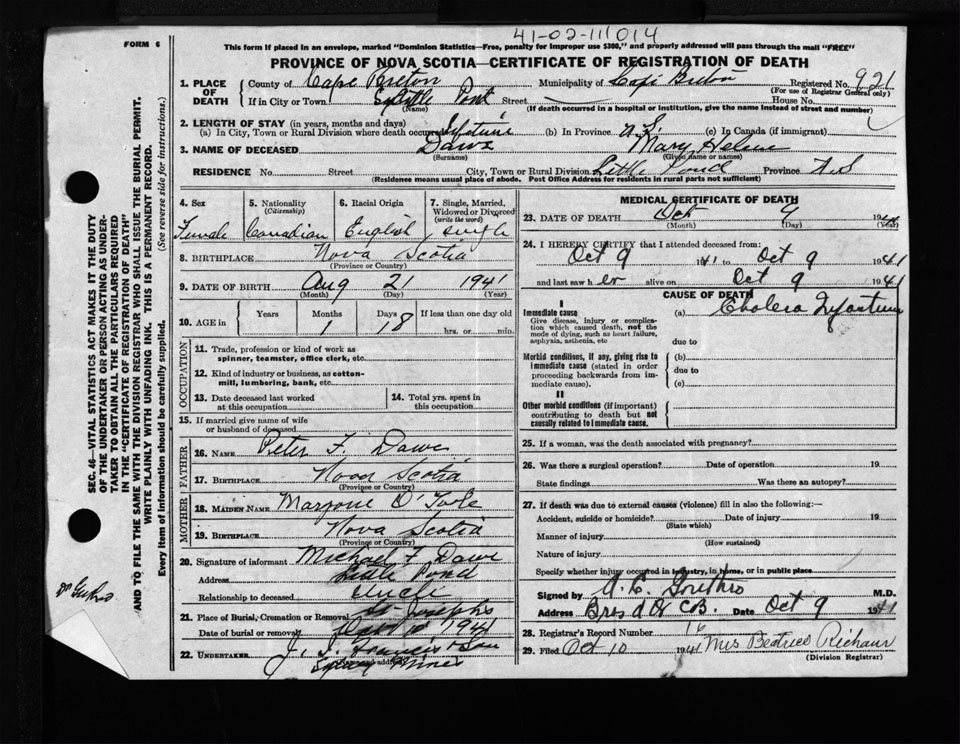 41-02-111014
FORM 6
This form if placed in an envelope, marked "Dominion Statistics—Free, penalty for improper use $300," and properly addressed will pass through the mail "FREE"
PROVINCE OF NOVA SCOTIA—CERTIFICATE OF REGISTRATION OF DEATH
1. PLACE OF DEATH County of Cape Breton Municipality of Cape Breton Registered No. 921
(For use of Registrar General only)
If in City or Town Little Pond Street House No.
(Name) (If death occurred in a hospital or institution, give the name instead of street and number)
2. LENGTH OF STAY (in years, months and days)
(a) In City, Town or Rural Division where death occurred Lifetime (b) In Province N.S. (c) In Canada (if immigrant)
3. NAME OF DECEASED Dawe Mary Helene
(Surname) (Given name or names)
RESIDENCE No. Street City, Town or Rural Division Little Pond Province N.S
(Residence means usual place of abode. Post Office Address for residents in rural parts not sufficient)
4. Sex 5. Nationality (Citizenship) 6. Racial Origin 7. Single, Married, Widowed or Divorced (write the word)
Female Canadian English single
8. BIRTHPLACE Nova Scotia
(Province or Country)
9. DATE OF BIRTH Aug 21 1941
(Month) (Day) (Year)
10. AGE in Years Months Days If less than one day old
1 18 hrs. or min.
OCCUPATION
11. Trade, profession or kind of work as spinner, teamster, office clerk, etc.
12. Kind of industry or business, as cotton-mill, lumbering, bank, etc.
13. Date deceased last worked at this occupation 14. Total yrs. spent in this occupation
15. If married give name of wife or husband of deceased
FATHER
16. NAME Peter F. Dawe
17. BIRTHPLACE Nova Scotia
(Province or Country)
MOTHER
18. MAIDEN NAME Marjorie O'Toole
19. BIRTHPLACE Nova Scotia
(Province or Country)
20. Signature of informant Michael F Dawe
Address Little Pond
Relationship to deceased uncle
21. Place of Burial, Cremation or Removal St Josephs
Date of burial or removal 10 1941
22. UNDERTAKER J. J. Francis & Son
(Name and address)
Sydney Mines
MEDICAL CERTIFICATE OF DEATH
23. DATE OF DEATH Oct 9 194
(Month) (Day) (Year)
24. I HEREBY CERTIFY that I attended deceased from:
Oct 9 1941 to Oct 9 1941
and last saw h er alive on Oct 9 1941
CAUSE OF DEATH
I
Immediate cause (a) Cholera Infantum
Give disease, injury or complication which caused death, not the mode of dying, such as heart failure, asphyxia, asthenia, etc
due to
Morbid conditions, if any, giving rise to immediate cause (stated in order proceeding backwards from immediate cause). (b)
due to
(c)
II
Other morbid conditions (if important) contributing to death but not causally related to immediate cause.
25. If a woman, was the death associated with pregnancy?
26. Was there a surgical operation? Date of operation 19
State findings Was there an autopsy?
27. If death was due to external causes (violence) fill in also the following:—
Accident, suicide or homicide? Date of injury 19
(State which)
Manner of injury
(How sustained)
Nature of injury
Specify whether injury occurred in industry, in home, or in public place
Signed by M.D.
Address C.B. Date Oct 9 1941
28. Registrar's Record Number 16
29. Filed Oct 10 1941 Mrs Beatrice
(Division Registrar)
SEC. 46—VITAL STATISTICS ACT MAKES IT THE DUTY
OF THE UNDERTAKER OR PERSON ACTING AS UNDERTAKER TO OBTAIN ALL THE PARTICULARS REQUIRED
IN THE "CERTIFICATE OF REGISTRATION OF DEATH"
AND TO FILE THE SAME WITH THE DIVISION REGISTRAR WHO SHALL ISSUE THE BURIAL PERMIT.
WRITE PLAINLY WITH UNFADING INK. THIS IS A PERMANENT RECORD.
Every item of information should be carefully supplied. (See reverse side for instructions.)